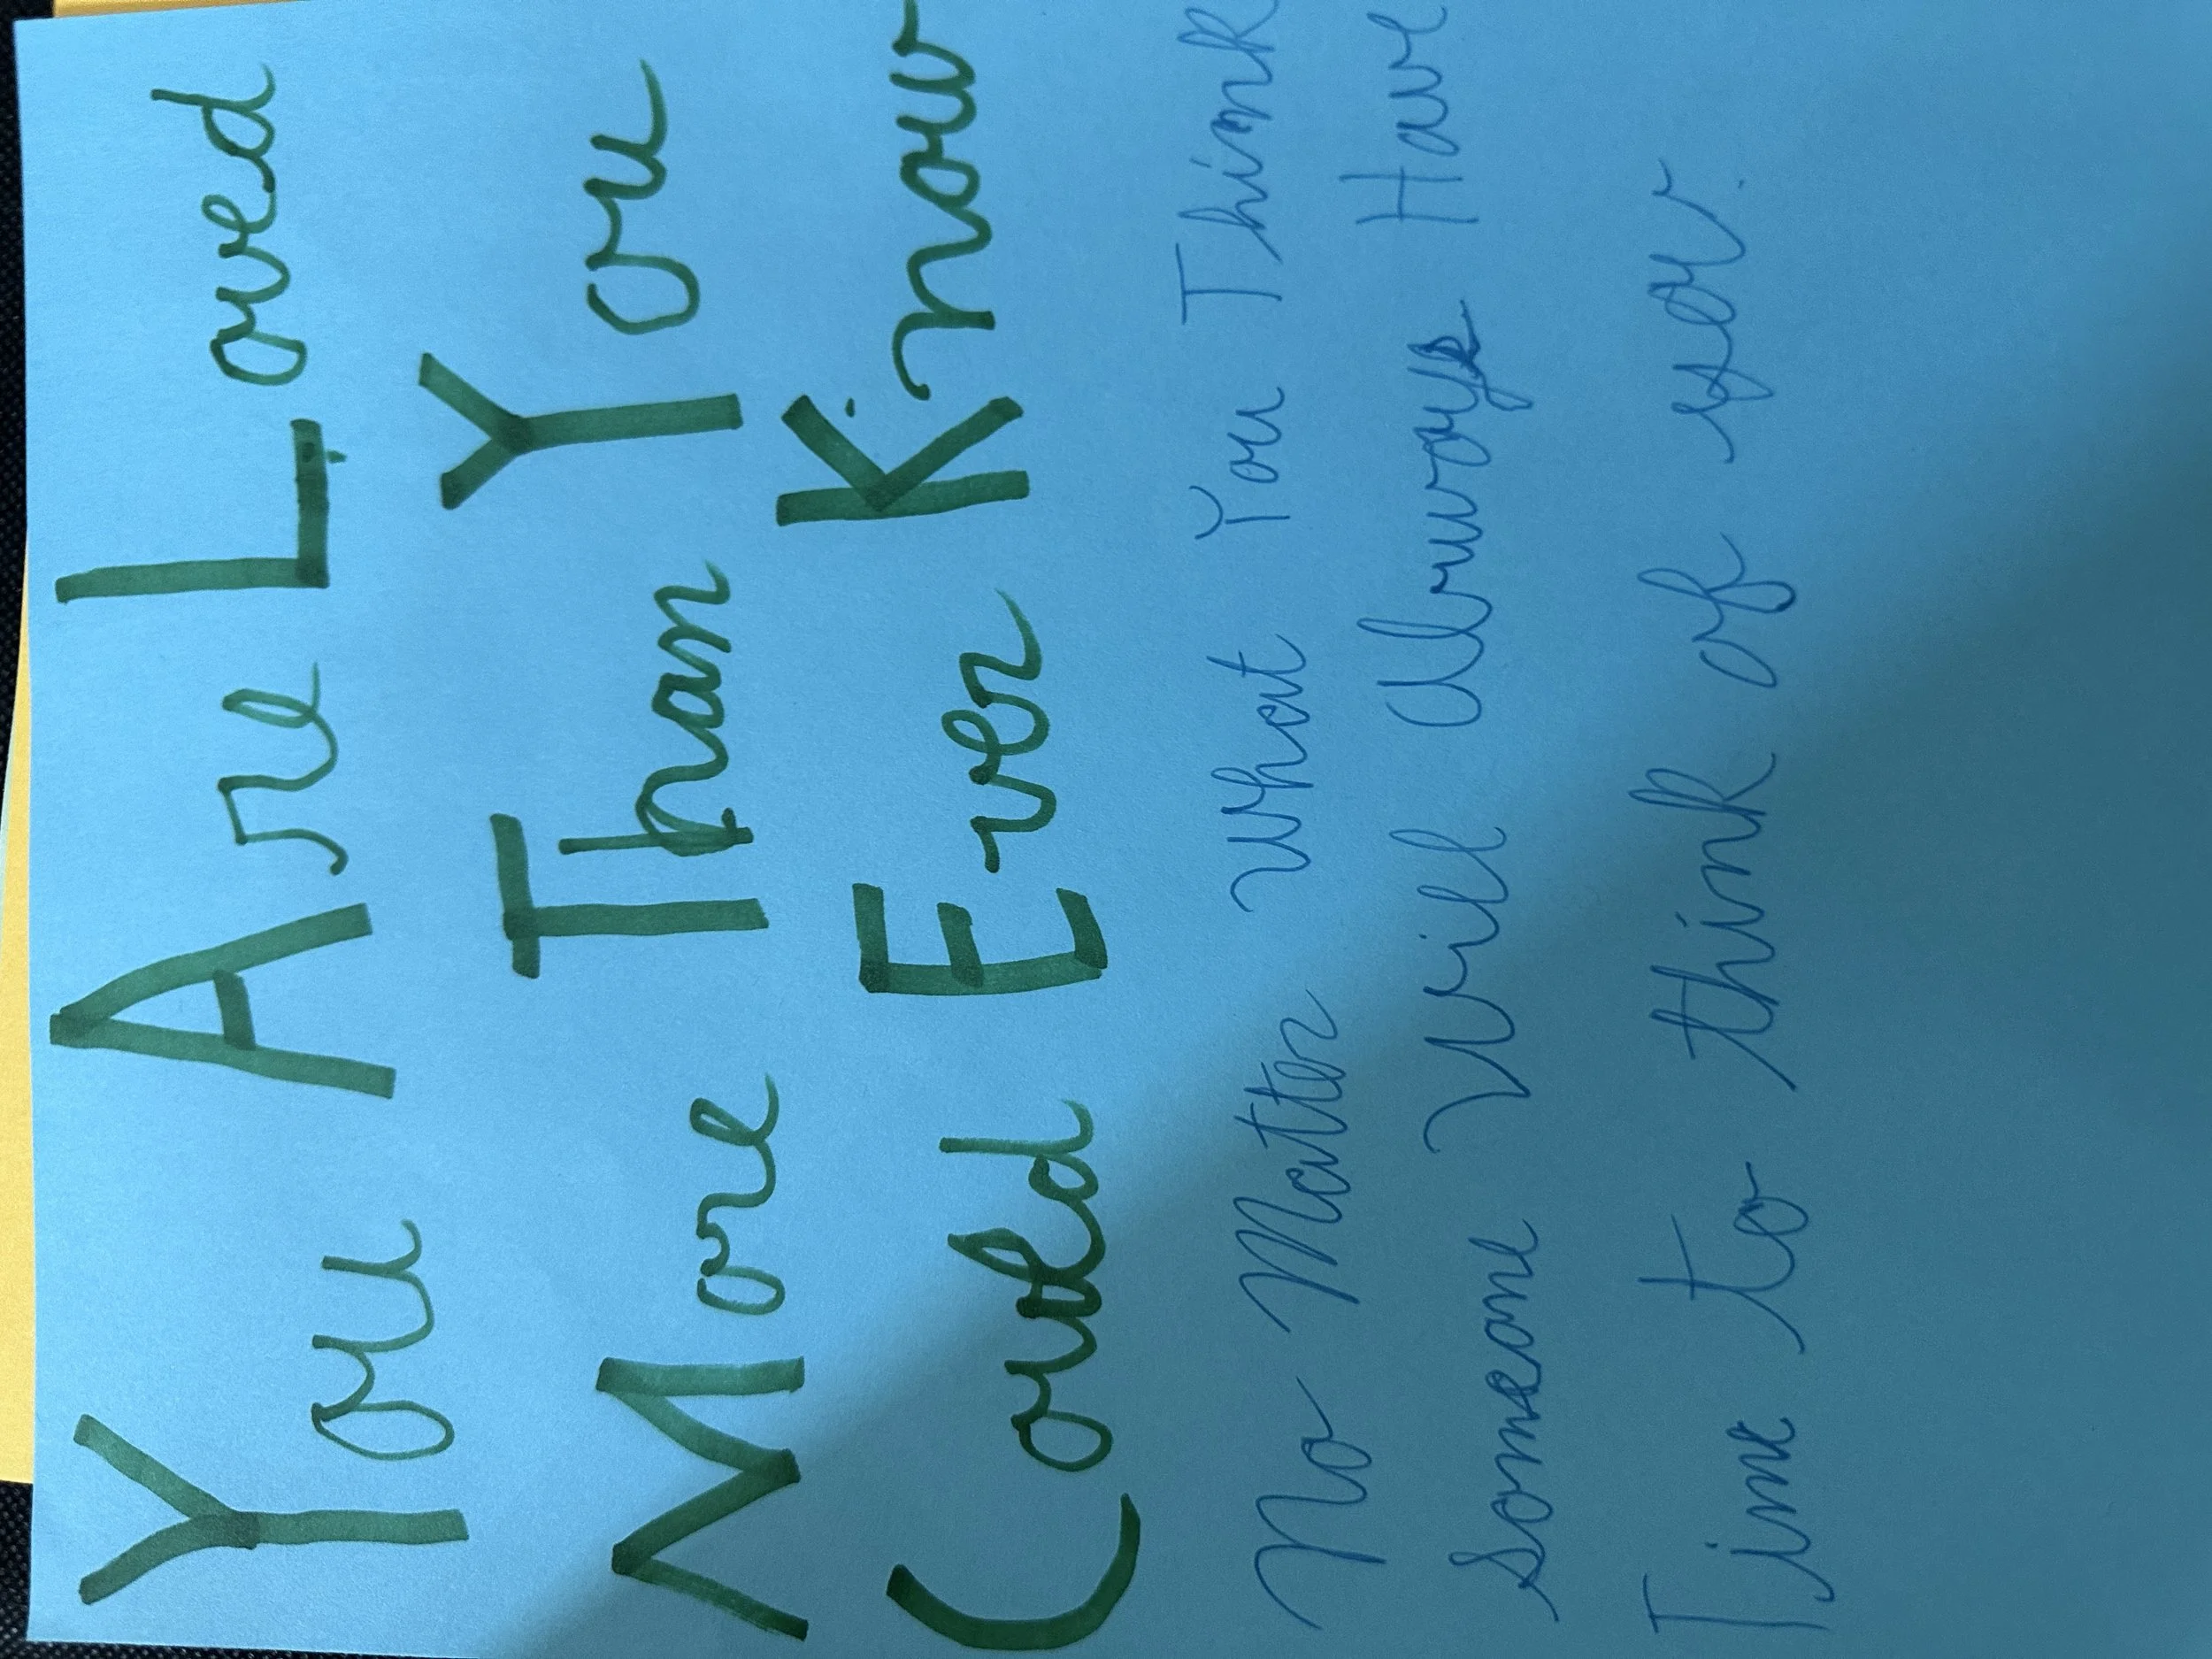 You Are Loved
More Than You
Could Ever Know
No Matter what You Think
someone will Always Have
Time to think of you.